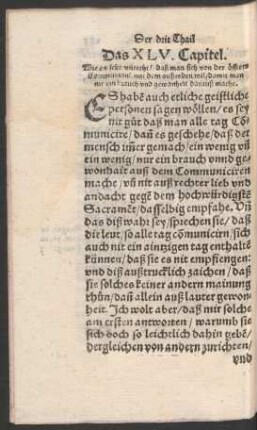 Der drit Thail
Das XLV. Capitel.
Wie es sehr unrecht/ daß man sich von der
Communion/ mit dem
nit ein brauch und gewonheit darauß mache.
ES habē auch etliche geistliche
personen sagen wöllen/ es sey
nit gůt daß man alle tag Cō
municire/ dañ es geschehe/ daß det
mensch im̄er gemach/ ein wenig vñ
ein wenig/ nur ein brauch vnnd ge
wonhait auß dem Communiciren
mache/ vñ nit auß rechter lieb vnd
andacht gegē dem hochwürdigstē
Sacramēt/ dasselbig empfahe. Vñ
das diß wahr sey/ sprechen sie/ daß
die leut/ so alle tag cōmunicirn/ sich
auch nit ein aintzigen tag enthaltē
künnen/ daß sie es nit empfiengen:
vnnd diß außtrucklich zaichen/ daß
sie solches keiner andern mainung
thün/ dañ allein auß lauter gewon
heit. Ich wolt aber/ daß mir solche
am ersten antworten/ warumb sie
sich doch so leichtlich dahin gebē/
dergleichen von andern zurichten/
vnd